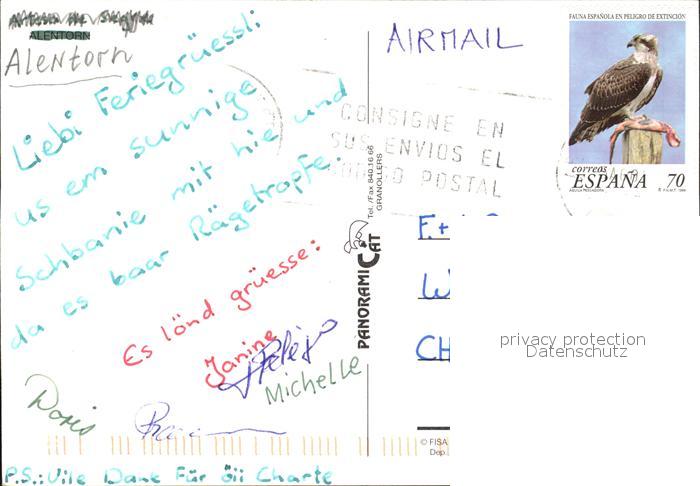 ALENTORN
Alentorn
Liebi Feriegrüessli
us em sunnige
Schbanie mit hie und
da es baar Rägetropfe.
Es lönd grüesse:
Janine
Michelle
Doris
P.S.: Vile Dank Für öii Charte
AIRMAIL
CONSIGNE EN
SUS ENVIOS EL
CODIGO POSTAL
FAUNA ESPAÑOLA EN PELIGRO DE EXTINCIÓN
correos
ESPAÑA 70
AGUILA PESCADORA
Tel./Fax 840.16.66
GRANOLLERS
PANORAMICAT
F.+
CH
privacy protection
Datenschutz
© FISA
Dep.